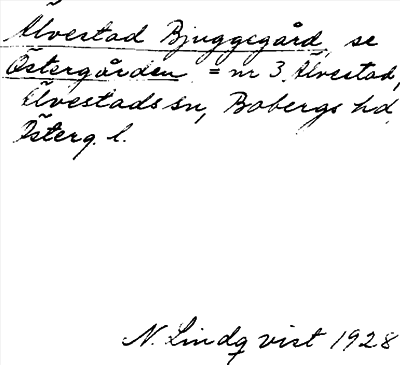 Älvestad Bjuggegård, se
Östergården = nr 3 Älvestad,
Älvestads sn, Bobergs hd,
Österg. l.
N. Lindqvist 1928